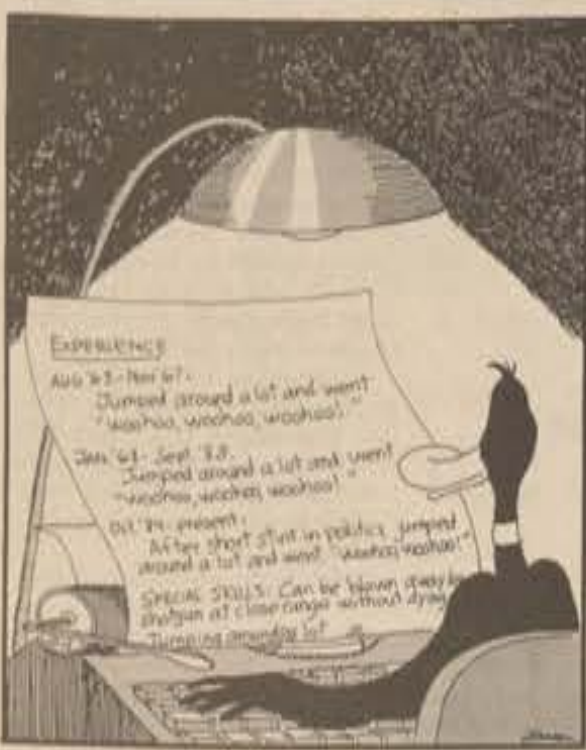 EXPERIENCE
AUG '63 - Nov '67.
Jumped around a lot and went
"woohoo, woohoo, woohoo!"
JAN. - Sept.
Jumped around a lot and went
"woohoo, woohoo, woohoo!"
Oct. present.
After short stint in politics, jumped
around a lot and went "woohoo, woohoo!"
SPECIAL SKILLS: Can be blown away by
shotgun at close range without dying
Jumping around a lot